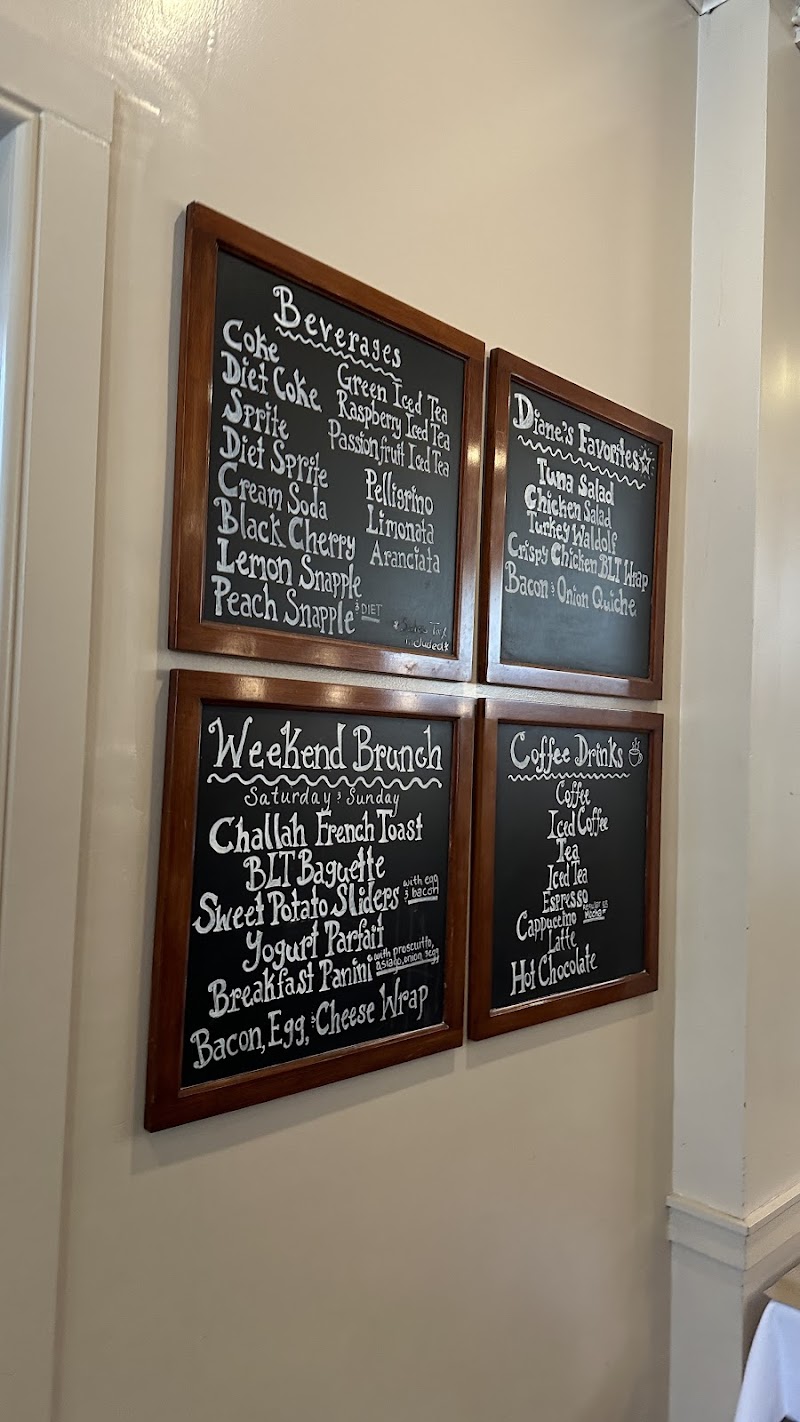 Beverages
Coke
Diet Coke
Sprite
Diet Sprite
Cream Soda
Black Cherry
Lemon Snapple
Peach Snapple & DIET
Green Iced Tea
Raspberry Iced Tea
Passionfruit Iced Tea
Pelligrino
Limonata
Aranciata
* Sales Tax
included *
Diane's Favorites
Tuna Salad
Chicken Salad
Turkey Waldolf
Crispy Chicken BLT Wrap
Bacon & Onion Quiche
Weekend Brunch
Saturday & Sunday
Challah French Toast
BLT Baguette
Sweet Potato Sliders with egg
& bacon
Yogurt Parfait
Breakfast Panini with proscuitto,
asiago, onion, egg
Bacon, Egg, & Cheese Wrap
Coffee Drinks
Coffee
Iced Coffee
Tea
Iced Tea
Espresso
Cappuccino Regular or
Mocha
Latte
Hot Chocolate